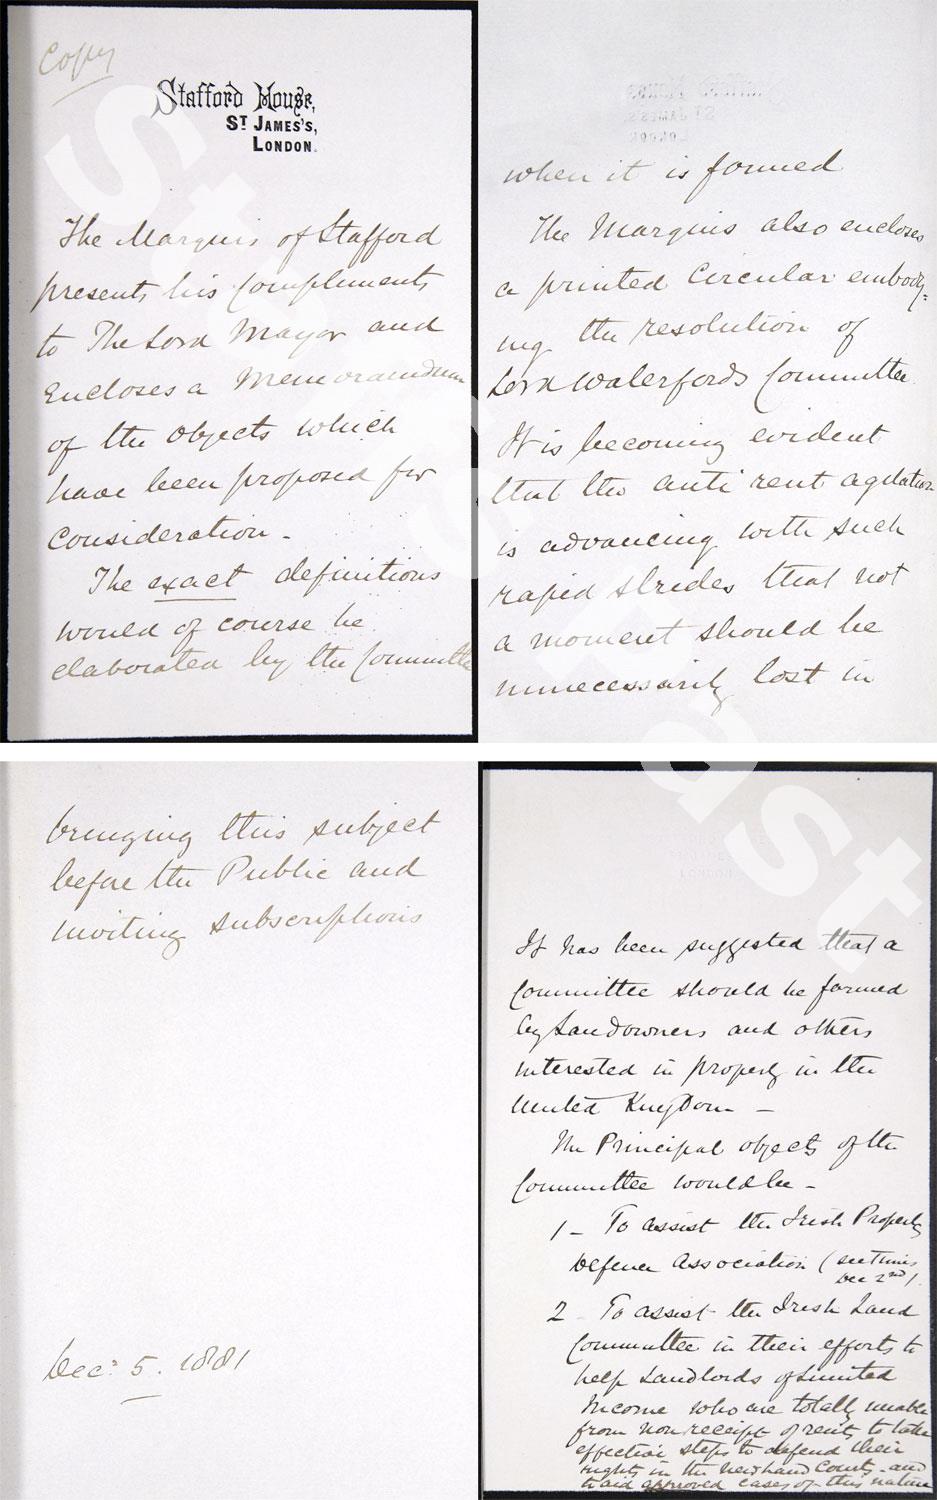 Copy
Stafford House,
St James's,
London.
The Marquis of Stafford
presents his Compliments
to The Lord Mayor and
Encloses a Memorandum
of the objects which
have been proposed for
Consideration -
The exact definitions
would of course be
elaborated by the Committee
when it is formed
The Marquis also encloses
a printed Circular embody=
ing the resolution of
Lord Waterfords Committee
It is becoming evident
that the anti rent agitation
is advancing with such
rapid strides that not
a moment should be
unnecessarily lost in
bringing this subject
before the Public and
inviting subscriptions
Decr 5. 1881
It has been suggested that a
Committee should be formed
by Landowners and others
interested in property in the
United Kingdom -
The Principal objects of the
Committee would be -
1 - To assist the Irish Property
Defence Association (see Times
Dec 2nd).
2 - To assist the Irish Land
Committee in their efforts to
help Landlords of limited
Income who are totally unable
from non receipt of rents to take
effective steps to defend their
rights in the New Land Courts - and
to aid approved cases of this nature
Stafford's Past